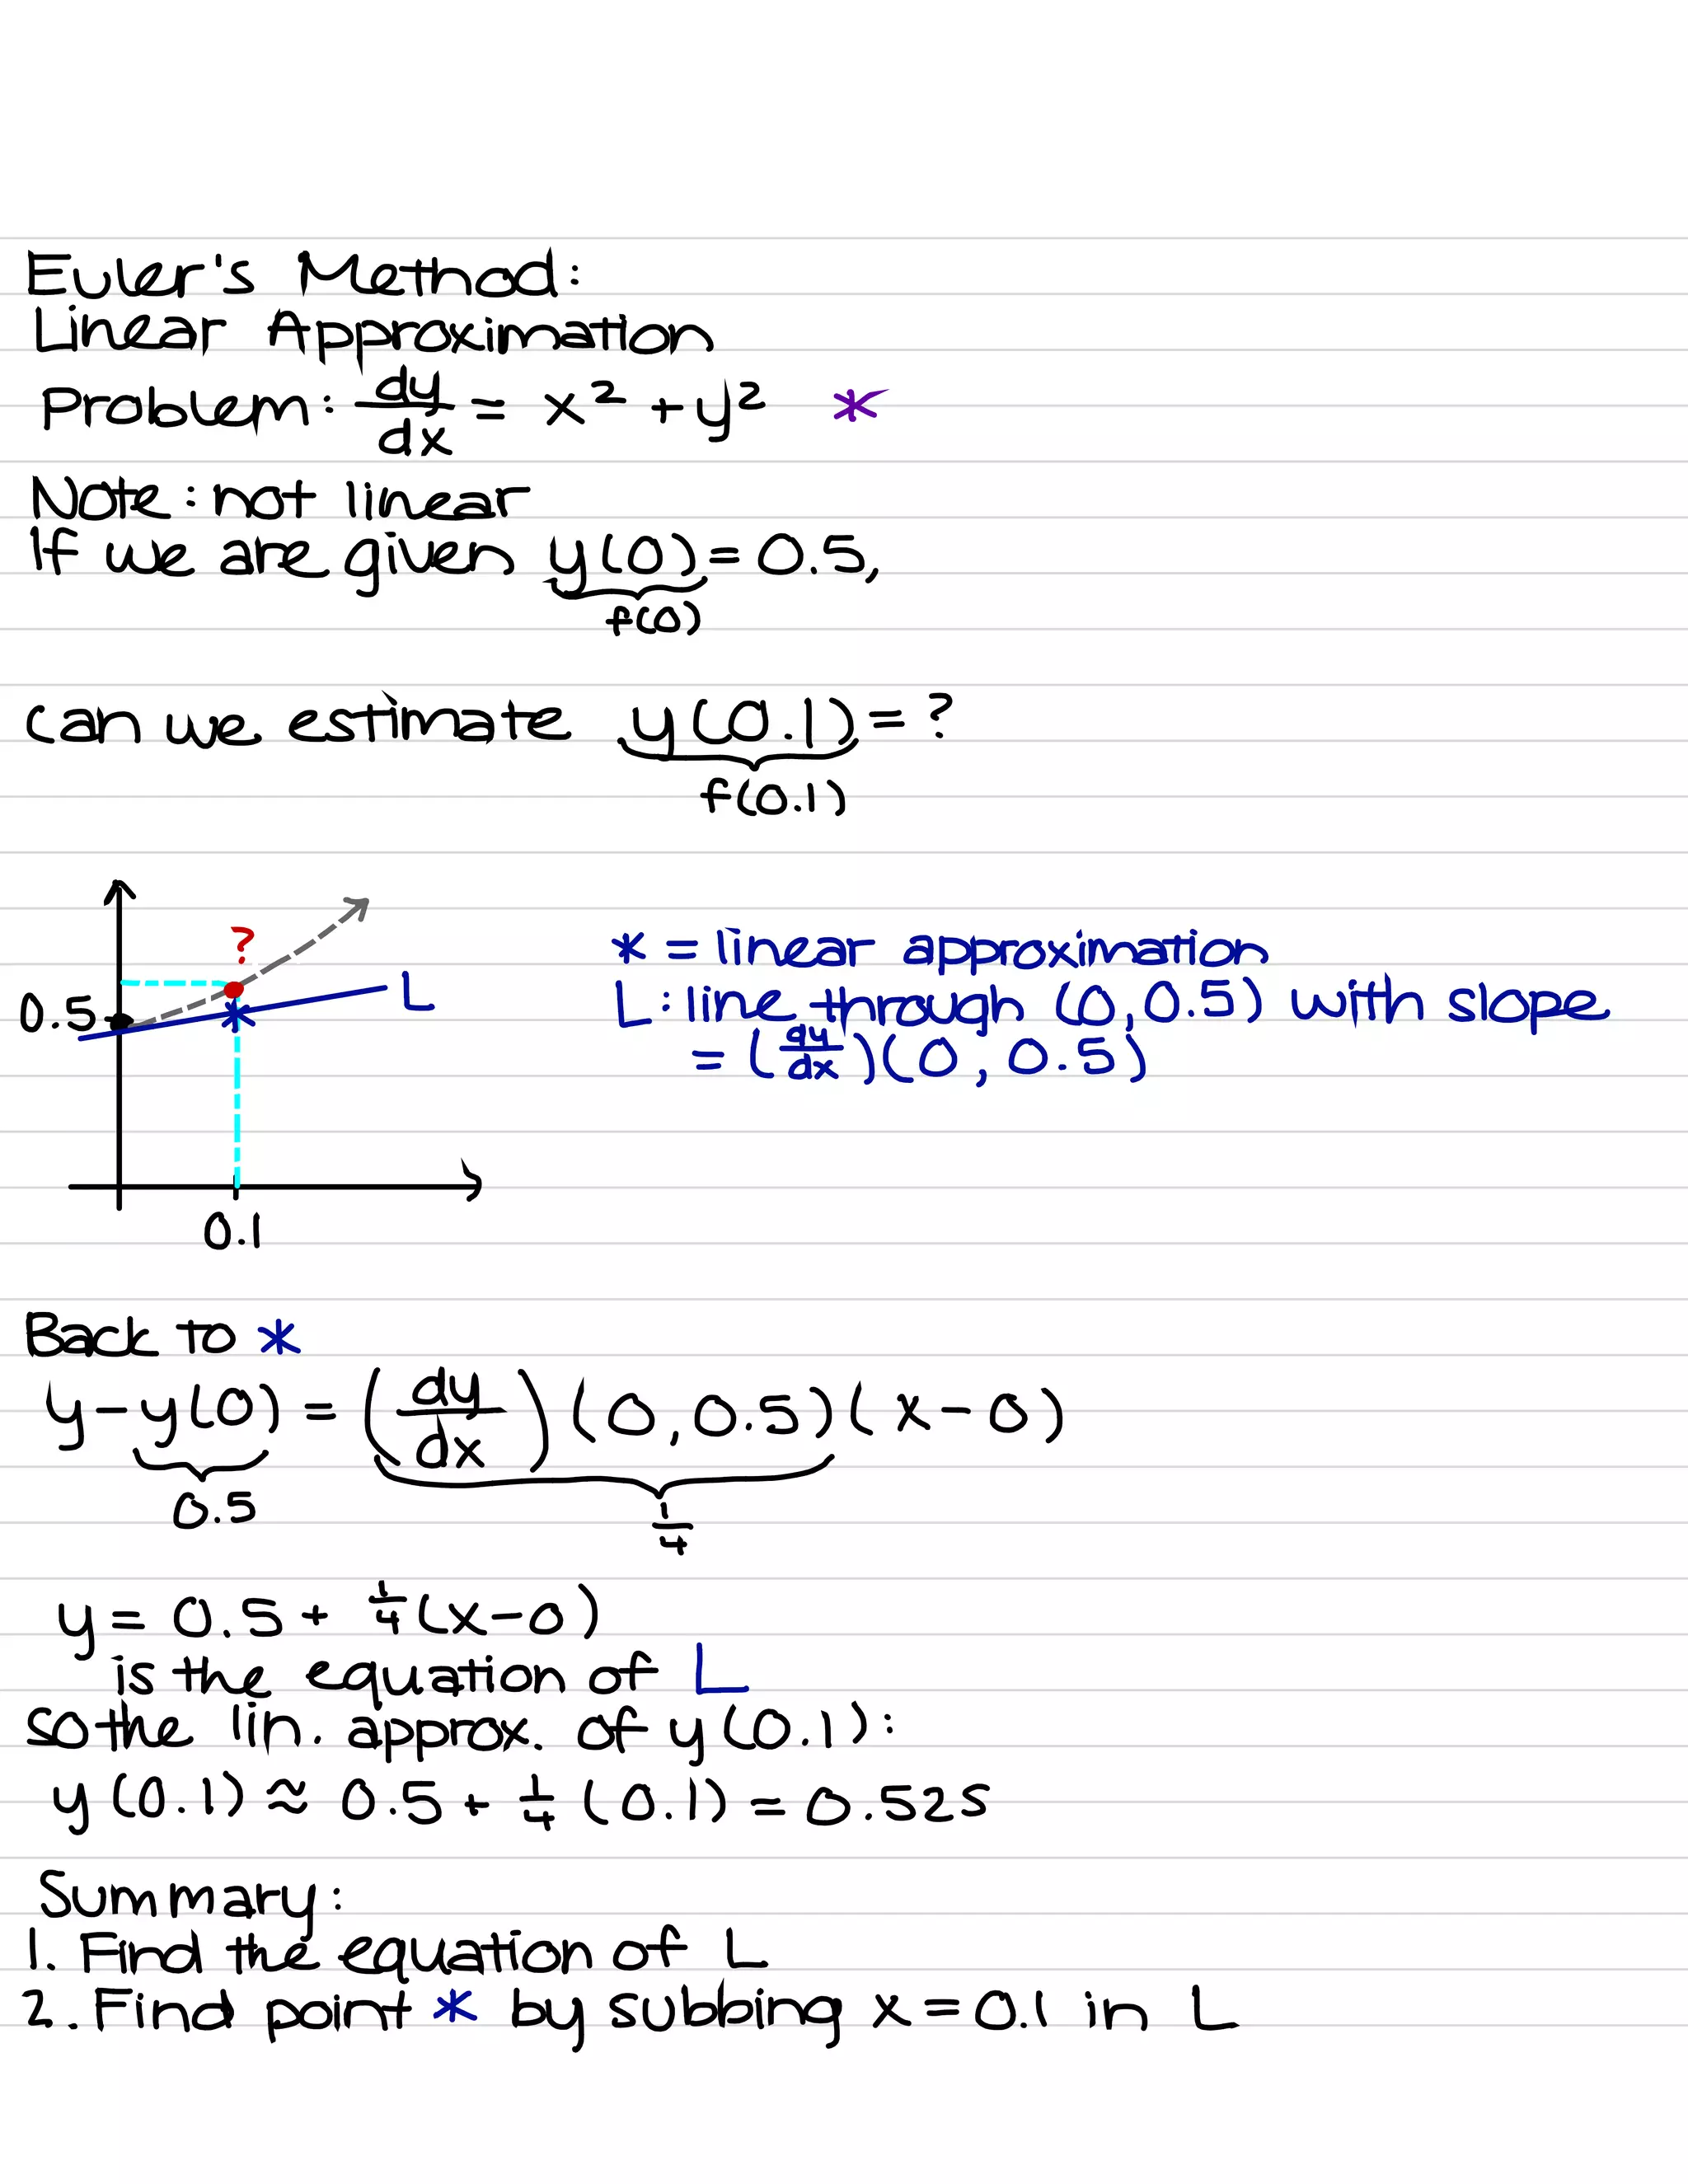 Euler's Method:
Linear Approximation
Problem: dy/dx = x² + y² *
Note: not linear
If we are given y(0) = 0.5,
f(0)
can we estimate y(0.1) = ?
f(0.1)
?
0.5
L
0.1
* = linear approximation
L: line through (0, 0.5) with slope
= (dy/dx)(0, 0.5)
Back to *
y - y(0) = (dy/dx)(0, 0.5)(x - 0)
0.5 1/4
y = 0.5 + 1/4(x-0)
is the equation of L
so the lin. approx. of y(0.1):
y(0.1) ≈ 0.5 + 1/4 (0.1) = 0.525
Summary:
1. Find the equation of L
2. Find point * by subbing x = 0.1 in L